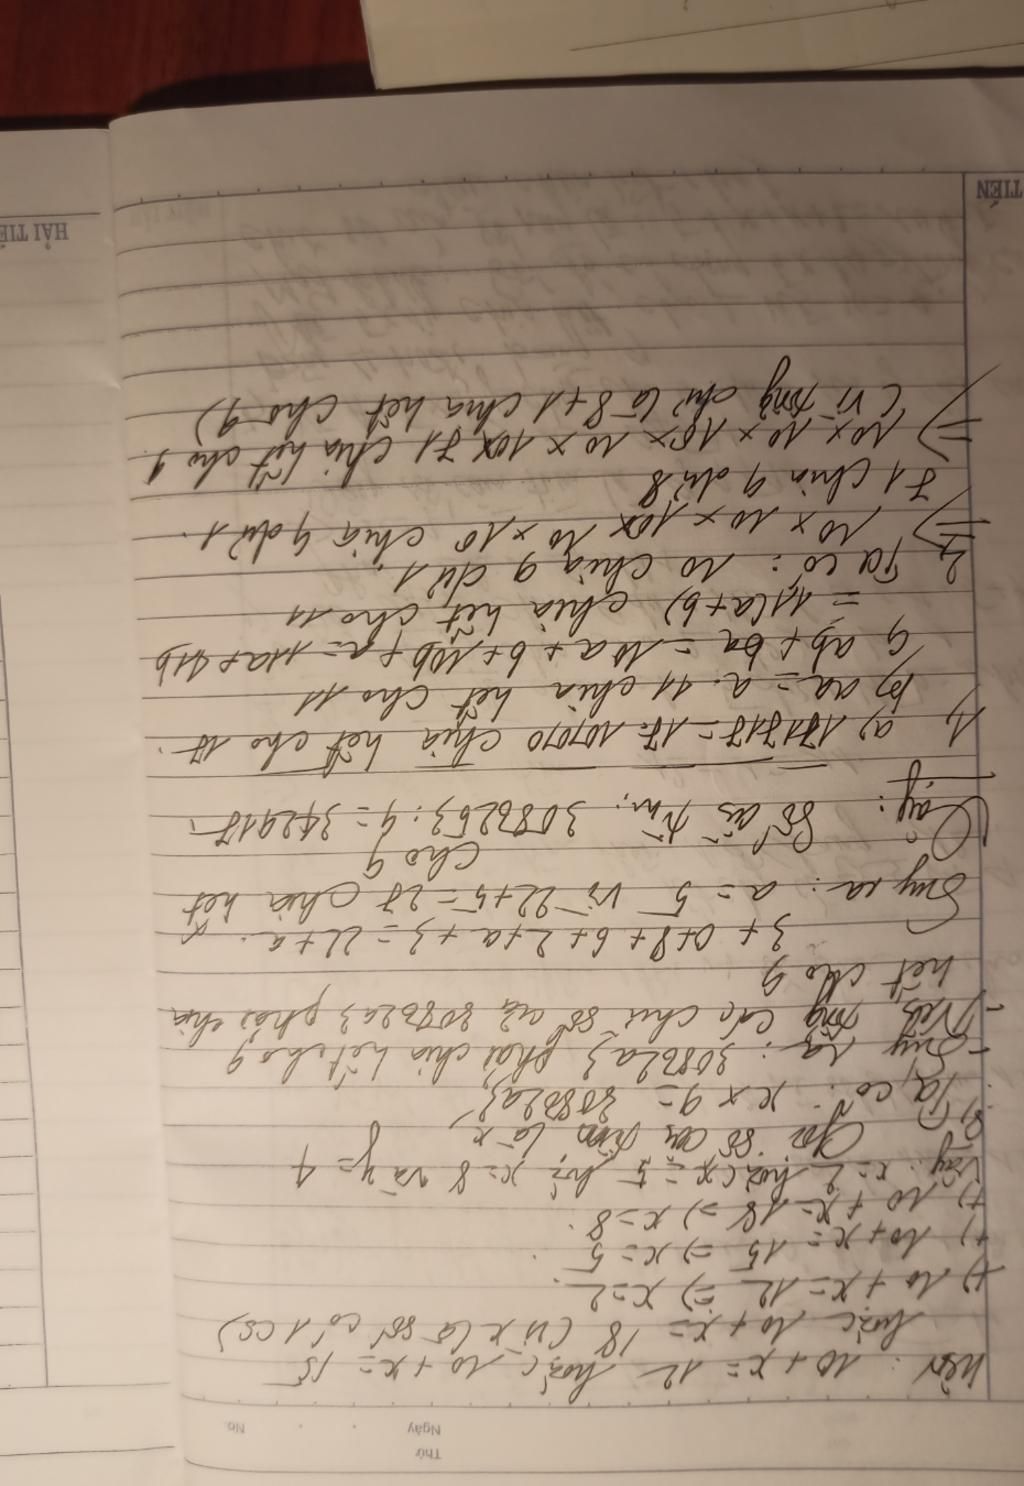 Thứ
Ngày
No.
nên: 10 + x = 12 hoặc 10 + x = 15
hoặc 10 + x = 18 (vì x là số có 1 cs)
+) 10 + x = 12 => x = 2.
+) 10 + x = 15 => x = 5
+) 10 + x = 18 => x = 8.
Vậy: x = 2 hoặc x = 5 hoặc x = 8 và y = 4
8) Gọi số cần tìm là x
Ta có: x × 9 = 30862a3
- Suy ra: 30862a3 phải chia hết cho 9
- Nên, tổng các chữ số của 30862a3 phải chia
hết cho 9
3 + 0 + 8 + 6 + 2 + a + 3 = 22 + a.
Suy ra: a = 5 vì 22 + 5 = 27 chia hết
cho 9
Vậy: Số cần tìm: 3086253 : 9 = 342917.
1) a) 171717 = 17. 10101 chia hết cho 17.
b) aa = a. 11 chia hết cho 11
c) ab + ba = 10a + b + 10b + a = 11a + 11b
= 11(a + b) chia hết cho 11
2 Ta có: 10 chia 9 dư 1.
=> 10 × 10 × 10 × 10 × 10 chia 9 dư 1.
71 chia 9 dư 8
=> 10 × 10 × 10 × 10 × 10 × 71 chia hết cho 9.
(Vì tổng dư là 8 + 1 chia hết cho 9)
TIẾN
HẢI TIẾ